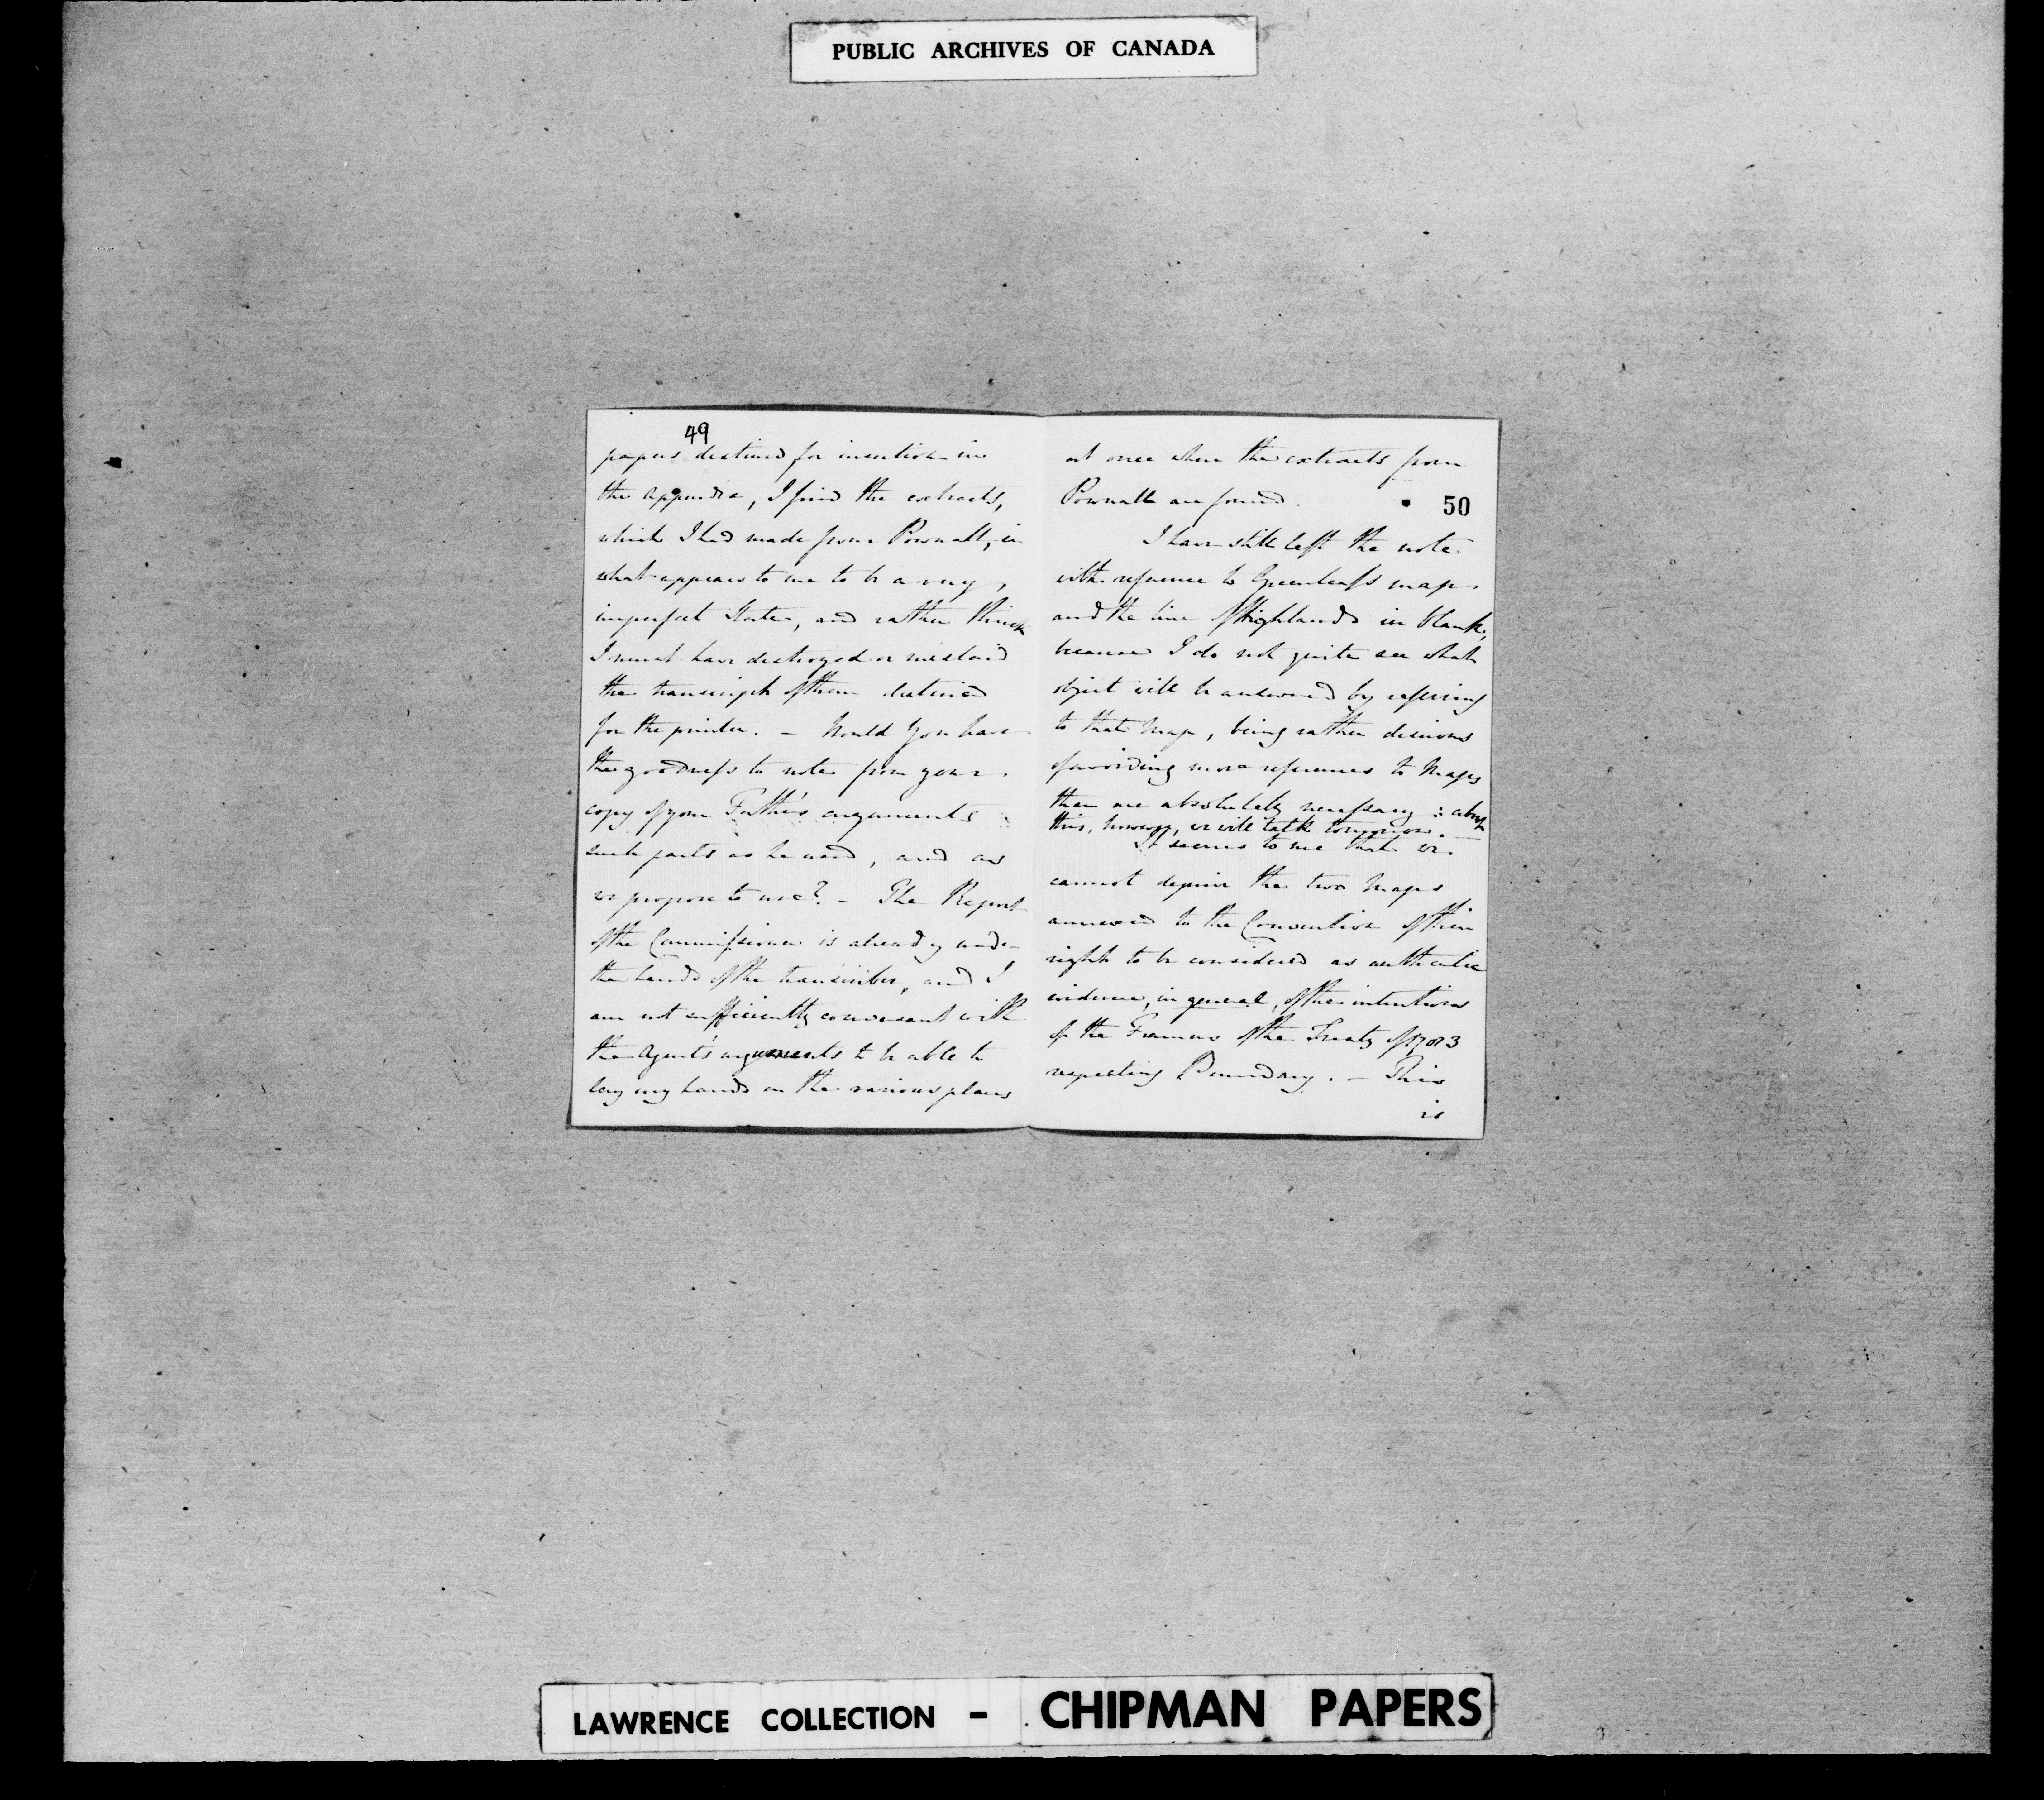 PUBLIC ARCHIVES OF CANADA
49
papers destined for insertion in
the Appendix, I find the extracts,
which I had made from Pownall, in
what appears to me to be a very
imperfect State, and rather think
I must have destroyed or mislaid
the transcript of them destined
for the printer. – Would you have
the goodness to note from your
copy of your Father's arguments
such parts as he used, and as
we propose to use? – The Report
of the Commissioner is already under
the hands of the transcriber, and I
am not sufficiently conversant with
the Agent's arguments to be able to
lay my hands on the various places
at once where the extracts from
Pownall are found.
50
I have still left the note
with reference to Greenleaf's map
and the line of Highlands in blank,
because I do not quite see what
object will be answered by referring
to that Map, being rather desirous
of avoiding more references to Maps
than are absolutely necessary : about
this, however, we will talk tomorrow. –
It seems to me that we
cannot deprive the two Maps
annexed to the Convention of their
right to be considered as authentic
evidence, in general, of the intentions
of the Framers of the Treaty of 1783
respecting Boundary. – This
is
LAWRENCE COLLECTION – CHIPMAN PAPERS